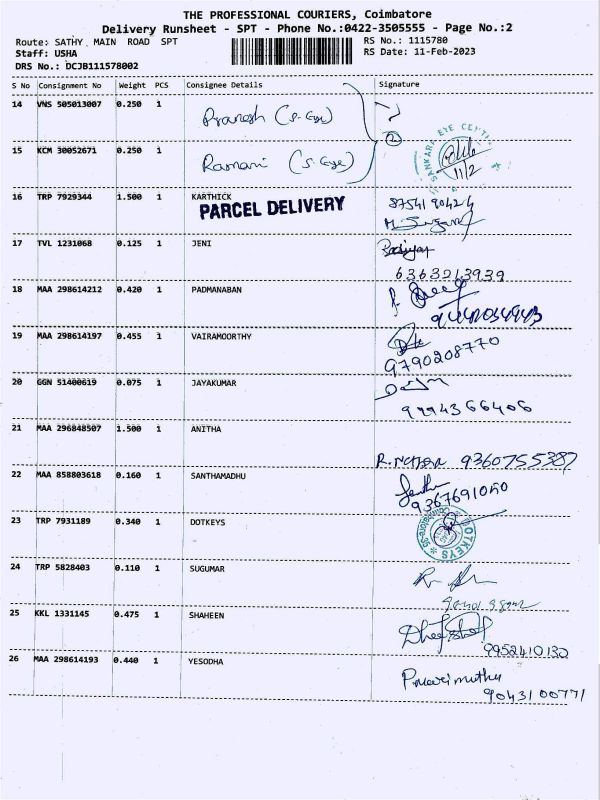 THE PROFESSIONAL COURIERS, Coimbatore
Delivery Runsheet - SPT - Phone No.:0422-3505555 - Page No.:2
Route: SATHY MAIN ROAD SPT
RS No.: 1115780
Staff: USHA
RS Date: 11-Feb-2023
DRS No.: DCJB111578002
S No Consignment No Weight PCS Consignee Details Signature
14 VNS 505013007 0.250 1 Pranesh (S. Eye)
2
15 KCM 30052671 0.250 1 Ramani (S. Eye)
SANKARA EYE
11/2
16 TRP 7929344 1.500 1 KARTHICK
PARCEL DELIVERY
17 TVL 1231068 0.125 1 JENI
6363213939
18 MAA 298614212 0.420 1 PADMANABAN
19 MAA 298614197 0.455 1 VAIRAMOORTHY
9790208770
20 GGN 51400619 0.075 1 JAYAKUMAR
9994366406
21 MAA 296848507 1.500 1 ANITHA
9360755387
22 MAA 858803618 0.160 1 SANTHAMADHU
9367691080
23 TRP 7931189 0.340 1 DOTKEYS
DOTKEYS
24 TRP 5828403 0.110 1 SUGUMAR
25 KKL 1331145 0.475 1 SHAHEEN
9952410130
26 MAA 298614193 0.440 1 YESODHA
9043100771